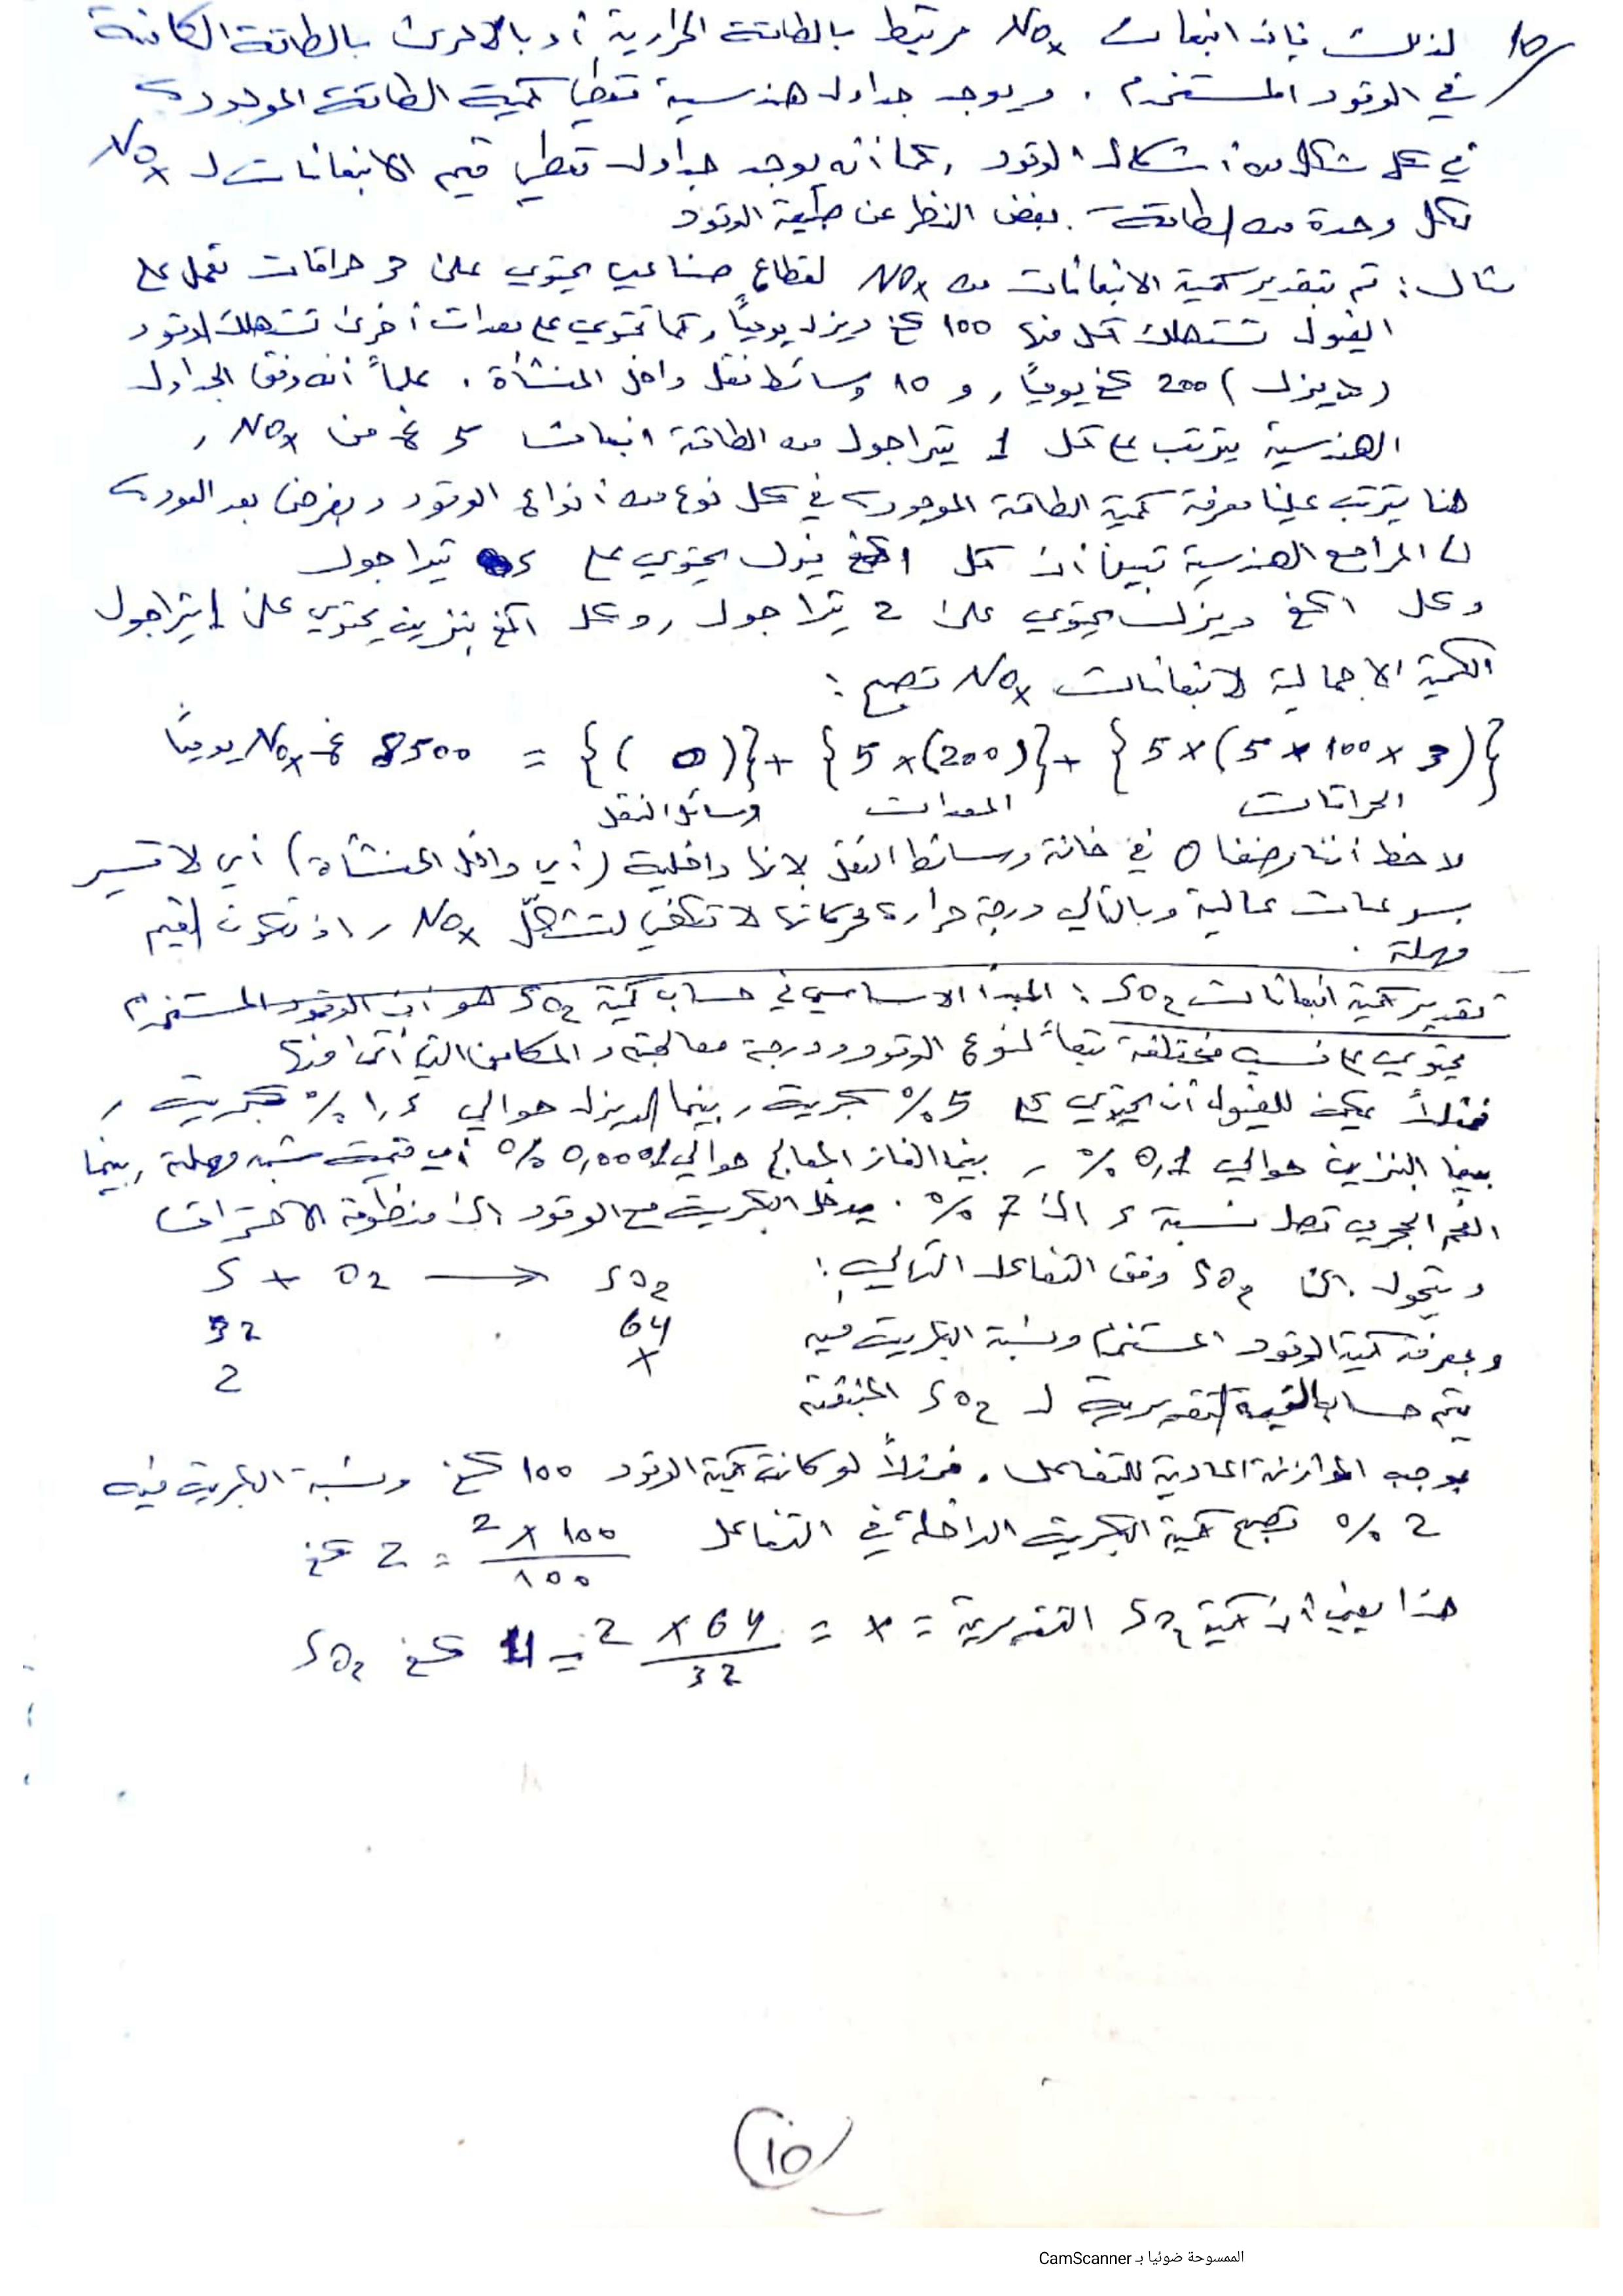 10/ لذلك فإن انبعاث NOx مرتبط بالطاقة الحرارية أو بالأحرى بالطاقة الكامنة
في الوقود المستخدم. ويوجد جداول هندسية تعطي كمية الطاقة الموجودة
في كل شكل من أشكال الوقود، كما أنه يوجد جداول تعطي قيم الانبعاثات لـ NOx
لكل وحدة من الطاقة بغض النظر عن طبيعة الوقود
مثال: تم تقدير كمية الانبعاثات من NOx لقطاع صناعي يحتوي على 3 حراقات تعمل على
الفيول تستهلك كل منها 100 كغ ديزل يومياً، كما تحتوي على معدات أخرى تستهلك الوقود
(ديزل) 200 كغ يومياً، و 10 وسائط نقل داخل المنشأة. علماً أنه وفق الجداول
الهندسية يترتب على كل 1 تيراجول من الطاقة انبعاث 5 غ من NOx،
هنا يترتب علينا معرفة كمية الطاقة الموجودة في كل نوع من أنواع الوقود وبفرض بعد العودة
لـ المراجع الهندسية تبين أن كل 1 كغ فيول يحتوي على 5 تيراجول
وكل 1 كغ ديزل يحتوي على 2 تيراجول، وكل 1 كغ بنزين يحتوي على 1 تيراجول
الكمية الإجمالية لانبعاثات NOx تصبح:
{5 × (5 × 100 × 3)} + {5 × (200)} + {( 0 )} = 8500 غ NOx يومياً
الحراقات المعدات وسائل النقل
لاحظ أننا وضعنا 0 في خانة وسائط النقل لأنها داخلية (أي داخل المنشأة) أي لا تسير
بسرعات عالية وبالتالي درجة حرارة محركاتها لا تكفي لتشكل NOx، إذ تكون القيم
مهملة.
تقدير كمية انبعاثات SO2: المبدأ الأساسي في حساب كمية SO2 هو أن الوقود المستخدم
يحتوي على نسب مختلفة تبعاً لنوع الوقود ودرجة معالجته والمكامن التي أتى منها
فمثلاً يمكن للفيول أن يحتوي على 5 % كبريت، بينما الديزل حوالي % كبريت،
بينما البنزين حوالي 0,1 %، بينما الغاز المعالج حوالي 0,0001 % أي قيمة شبه مهملة، بينما
الفحم الحجري تصل نسبة إلى 7 %. يدخل الكبريت مع الوقود إلى منظومة الاحتراق
ويتحول إلى SO2 وفق التفاعل التالي: S + O2 ⟶ SO2
وبمعرفة كمية الوقود المستخدم ونسبة الكبريت فيه 32 64
2 x
يتم حساب القيمة التقديرية لـ SO2 المنبعثة
بموجب الموازنة المادية للتفاعل. فمثلاً لو كانت كمية الوقود 100 كغ ونسبة الكبريت فيه
2 % تصبح كمية الكبريت الداخلة في التفاعل 2 × 100 / 100 = 2 كغ
هذا يعني أن كمية SO2 التقديرية = x = 2 × 64 / 32 = 4 كغ SO2
10
الممسوحة ضوئيا بـ CamScanner